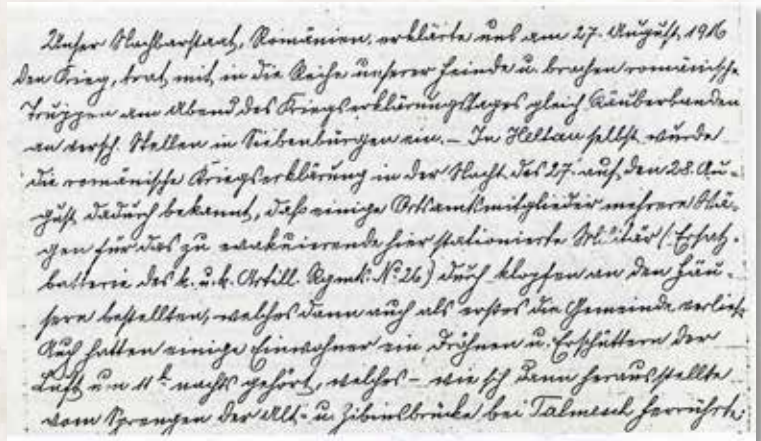 Unser Nachbarstaat, Rumänien, erklärte uns am 27. August 1916
den Krieg, trat mit in die Reihe unserer Feinde u. brachen romänische
Truppen am Abend des Kriegserklärungstages gleich Räuberbanden
an versch. Stellen in Siebenbürgen ein. – In Heltau selbst wurde
die romänische Kriegserklärung in der Nacht des 27. auf den 28. Au-
gust dadurch bekannt, daß einige Ortsamtsmitglieder mehrere Wä-
gen für das zu evakuierende hier stationierte Militär (Ersatz-
batterie des k. u. k. Artill. Rgmts. No 26) durch klopfen an den Häu-
sern bestellten, welches dann auch als erstes die Gemeinde verließ.
Auch hatten einige Einwohner ein Dröhnen u. Erschüttern der
Luft um 11h nachts gehört, welches – wie sich dann herausstellte
vom Sprengen der Alt- u. Zibinsbrücke bei Talmesch herrührte.